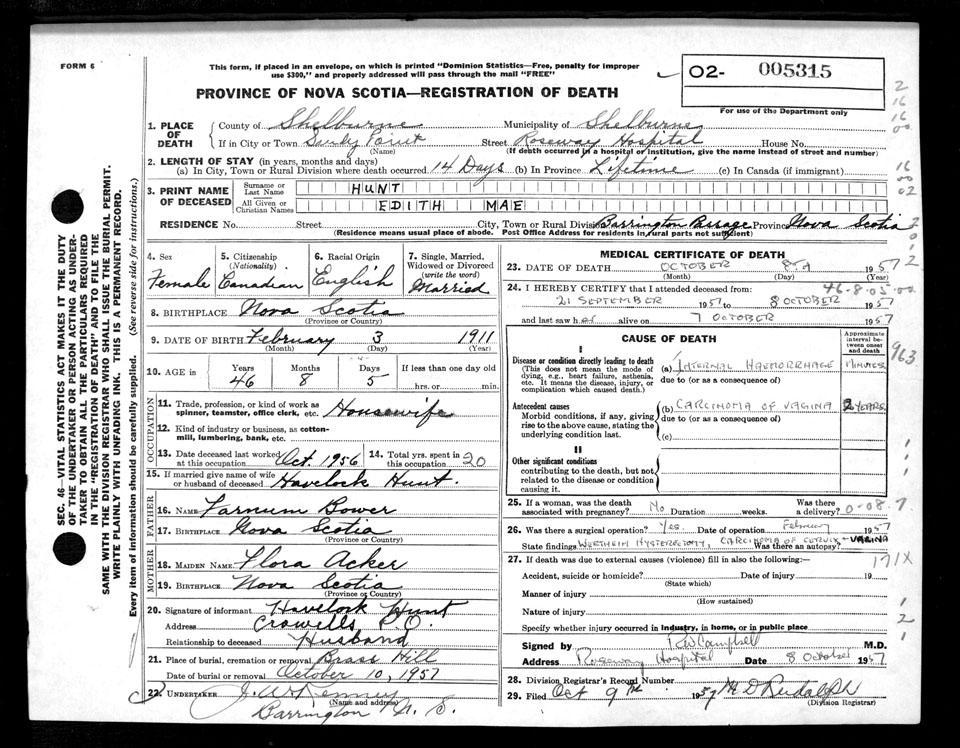 FORM 6
This form, if placed in an envelope, on which is printed "Dominion Statistics—Free, penalty for improper
use $300," and properly addressed will pass through the mail "FREE"
PROVINCE OF NOVA SCOTIA—REGISTRATION OF DEATH
02- 005315
For use of the Department only
SEC. 46—VITAL STATISTICS ACT MAKES IT THE DUTY
OF THE UNDERTAKER OR PERSON ACTING AS UNDER-
TAKER TO OBTAIN ALL THE PARTICULARS REQUIRED
IN THE "REGISTRATION OF DEATH" AND TO FILE THE
SAME WITH THE DIVISION REGISTRAR WHO SHALL ISSUE THE BURIAL PERMIT.
WRITE PLAINLY WITH UNFADING INK. THIS IS A PERMANENT RECORD.
Every item of information should be carefully supplied. (See reverse side for instructions.)
1. PLACE OF DEATH
County of Shelburne Municipality of Shelburne
If in City or Town Sandy Point Street Roseway Hospital House No.
(Name) (If death occurred in a hospital or institution, give the name instead of street and number)
2. LENGTH OF STAY (in years, months and days)
(a) In City, Town or Rural Division where death occurred 14 Days (b) In Province Lifetime (c) In Canada (if immigrant)
3. PRINT NAME OF DECEASED
Surname or Last Name HUNT
All Given or Christian Names EDITH MAE
RESIDENCE No. Street City, Town or Rural Division Barrington Passage Province Nova Scotia
(Residence means usual place of abode. Post Office Address for residents in rural parts not sufficient)
4. Sex Female
5. Citizenship (Nationality) Canadian
6. Racial Origin English
7. Single, Married, Widowed or Divorced (write the word) Married
8. BIRTHPLACE Nova Scotia
(Province or Country)
9. DATE OF BIRTH February 3 1911
(Month) (Day) (Year)
10. AGE in Years 46 Months 8 Days 5 If less than one day old
hrs. or min.
OCCUPATION
11. Trade, profession, or kind of work as
spinner, teamster, office clerk, etc. Housewife
12. Kind of industry or business, as cotton-
mill, lumbering, bank, etc.
13. Date deceased last worked at this occupation Oct. 1956
14. Total yrs. spent in this occupation 20
15. If married give name of wife
or husband of deceased Havelock Hunt.
FATHER
16. NAME Farnum Bower
17. BIRTHPLACE Nova Scotia
(Province or Country)
MOTHER
18. MAIDEN NAME Flora Acker
19. BIRTHPLACE Nova Scotia
(Province or Country)
20. Signature of informant Havelock Hunt
Address Crowells P.O.
Relationship to deceased Husband
21. Place of burial, cremation or removal Brass Hill
Date of burial or removal October 10, 1957
22. UNDERTAKER J. A. McKenney
(Name and address)
Barrington N. S.
MEDICAL CERTIFICATE OF DEATH
23. DATE OF DEATH OCTOBER 8th 1957
(Month) (Day) (Year)
24. I HEREBY CERTIFY that I attended deceased from: 46-8-05-00
21 SEPTEMBER 1957 to 8 OCTOBER 1957
and last saw her alive on 7 OCTOBER 1957
CAUSE OF DEATH
Approximate interval between onset and death
I
Disease or condition directly leading to death
(This does not mean the mode of
dying, e.g., heart failure, asthenia,
etc. It means the disease, injury, or
complication which caused death.)
(a) INTERNAL HAEMORRHAGE MINUTES
due to (or as a consequence of)
Antecedent causes
Morbid conditions, if any, giving
rise to the above cause, stating the
underlying condition last.
(b) CARCINOMA OF VAGINA 2 YEARS.
due to (or as a consequence of)
(c)
II
Other significant conditions
contributing to the death, but not
related to the disease or condition
causing it.
25. If a woman, was the death
associated with pregnancy? No Duration weeks. Was there a delivery? 0-08-7
26. Was there a surgical operation? Yes. Date of operation February 1957
State findings WERTHEIM HYSTERECTOMY, CARCINOMA OF CERVIX - VAGINA
Was there an autopsy?
27. If death was due to external causes (violence) fill in also the following:— 171X
Accident, suicide or homicide? Date of injury 19
(State which)
Manner of injury
(How sustained)
Nature of injury
Specify whether injury occurred in industry, in home, or in public place
Signed by RW Campbell M.D.
Address Roseway Hospital Date 8 October 1957
28. Division Registrar's Record Number
29. Filed Oct 9th 1957 M D Rudolph
(Division Registrar)
963